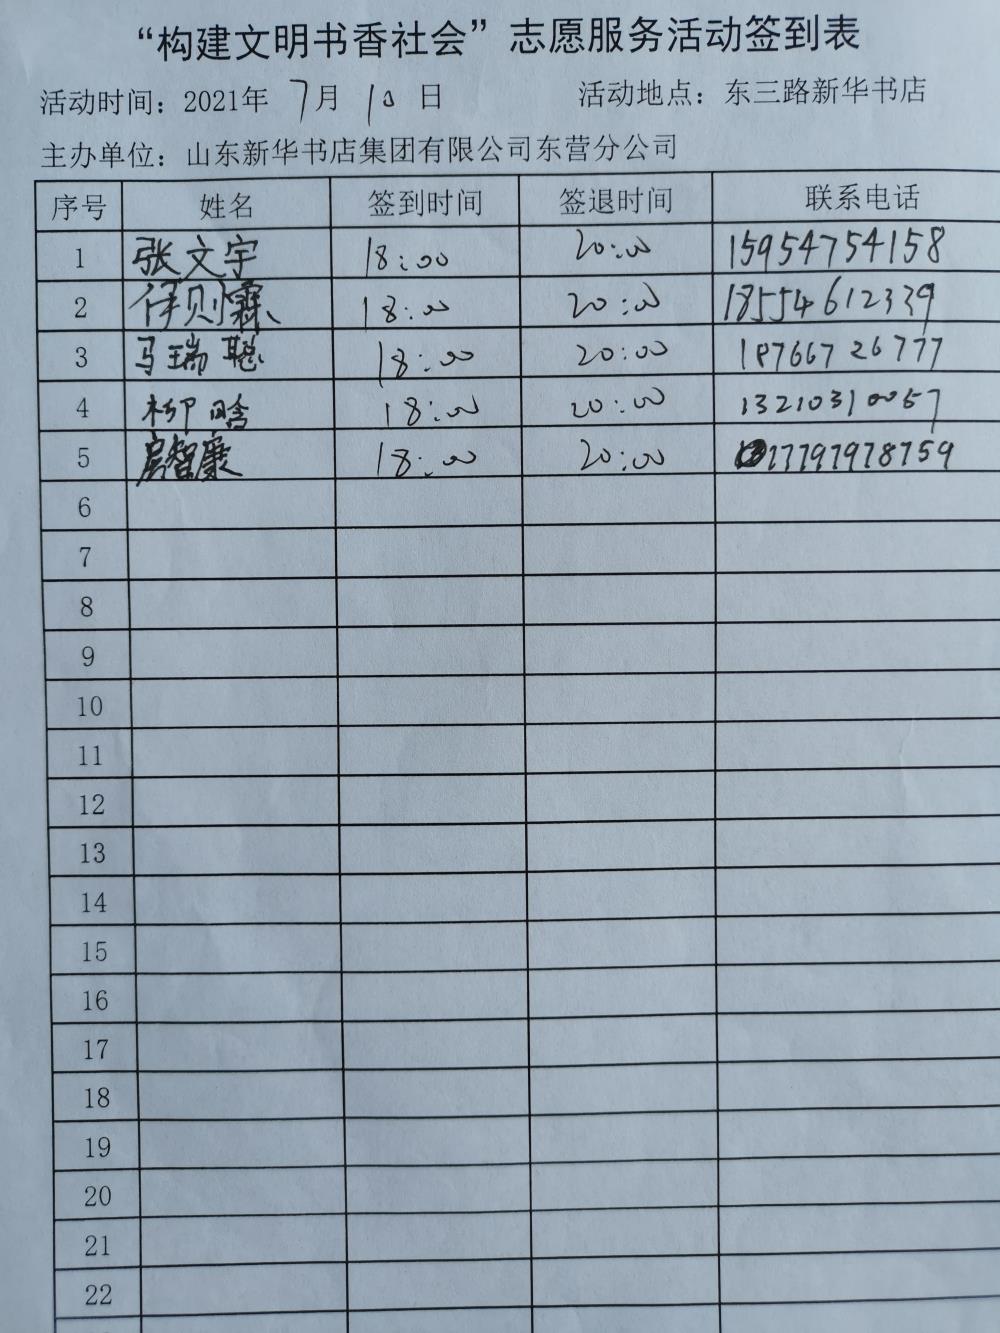 “构建文明书香社会”志愿服务活动签到表
活动时间：2021年 7月 10 日 活动地点：东三路新华书店
主办单位：山东新华书店集团有限公司东营分公司
序号 姓名 签到时间 签退时间 联系电话
1 张文宇 18:00 20:00 15954754158
2 伊则霖 18:00 20:00 18554612339
3 马瑞聪 18:00 20:00 18766726777
4 柳晗 18:00 20:00 13210310057
5 房智廉 18:00 20:00 17797978759
6
7
8
9
10
11
12
13
14
15
16
17
18
19
20
21
22